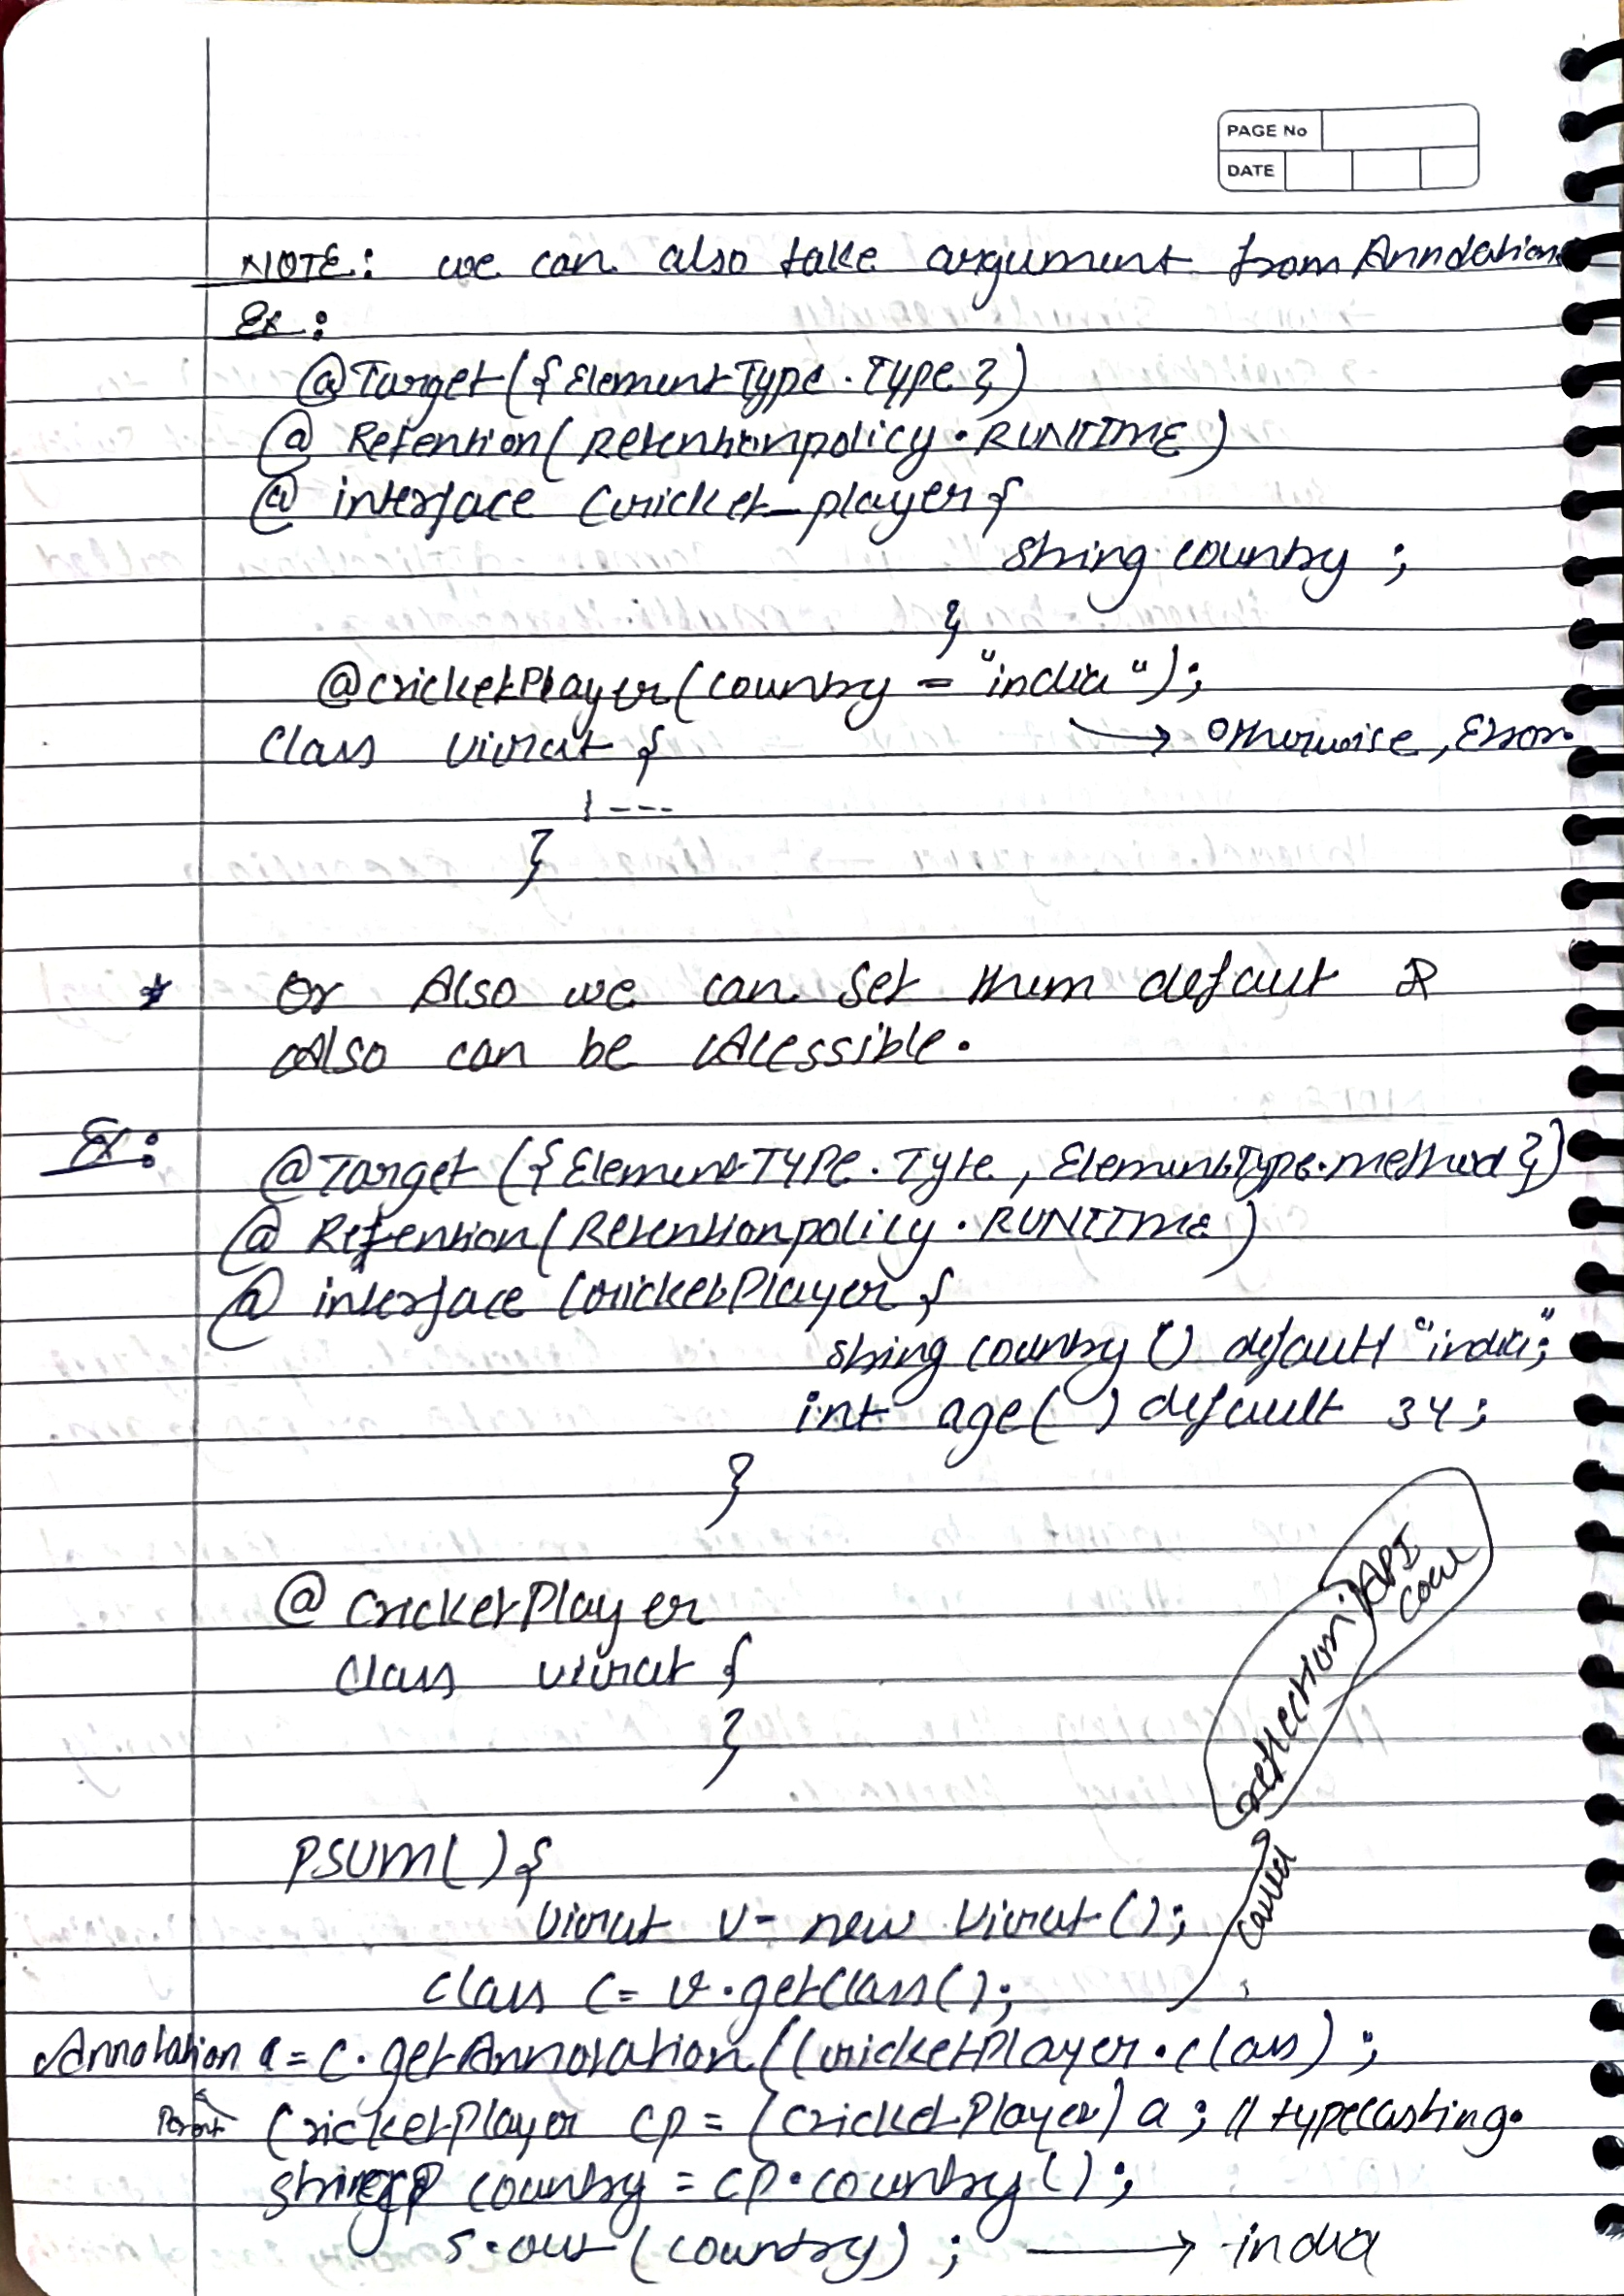 PAGE No
DATE
NOTE: we can also take argument from Annotations
Ex:
@Target({ElementType.Type})
@Retention(Retentionpolicy.RUNTIME)
@interface Cricket_player{
string country;
}
@cricketPlayer(country = "india");
class virat { → otherwise, Error.
¦---
}
* or Also we can set them default &
Also can be Acessible.
Ex: @Target ({ElementTYPE.Type, ElementType.method})
@Retention(Retentionpolicy.RUNTIME)
@interface CricketPlayer {
string country () default "india";
int age( ) default 34;
}
@CricketPlayer
class virat {
}
PSVM(){
virat v= new Virat();
class c= v.getClass();
called reflection API
Annotation a= c.getAnnotation(CricketPlayer.class);
Parent CricketPlayer cp = (CricketPlayer) a; // typecasting.
string country = cp.country();
s.out (country); → india